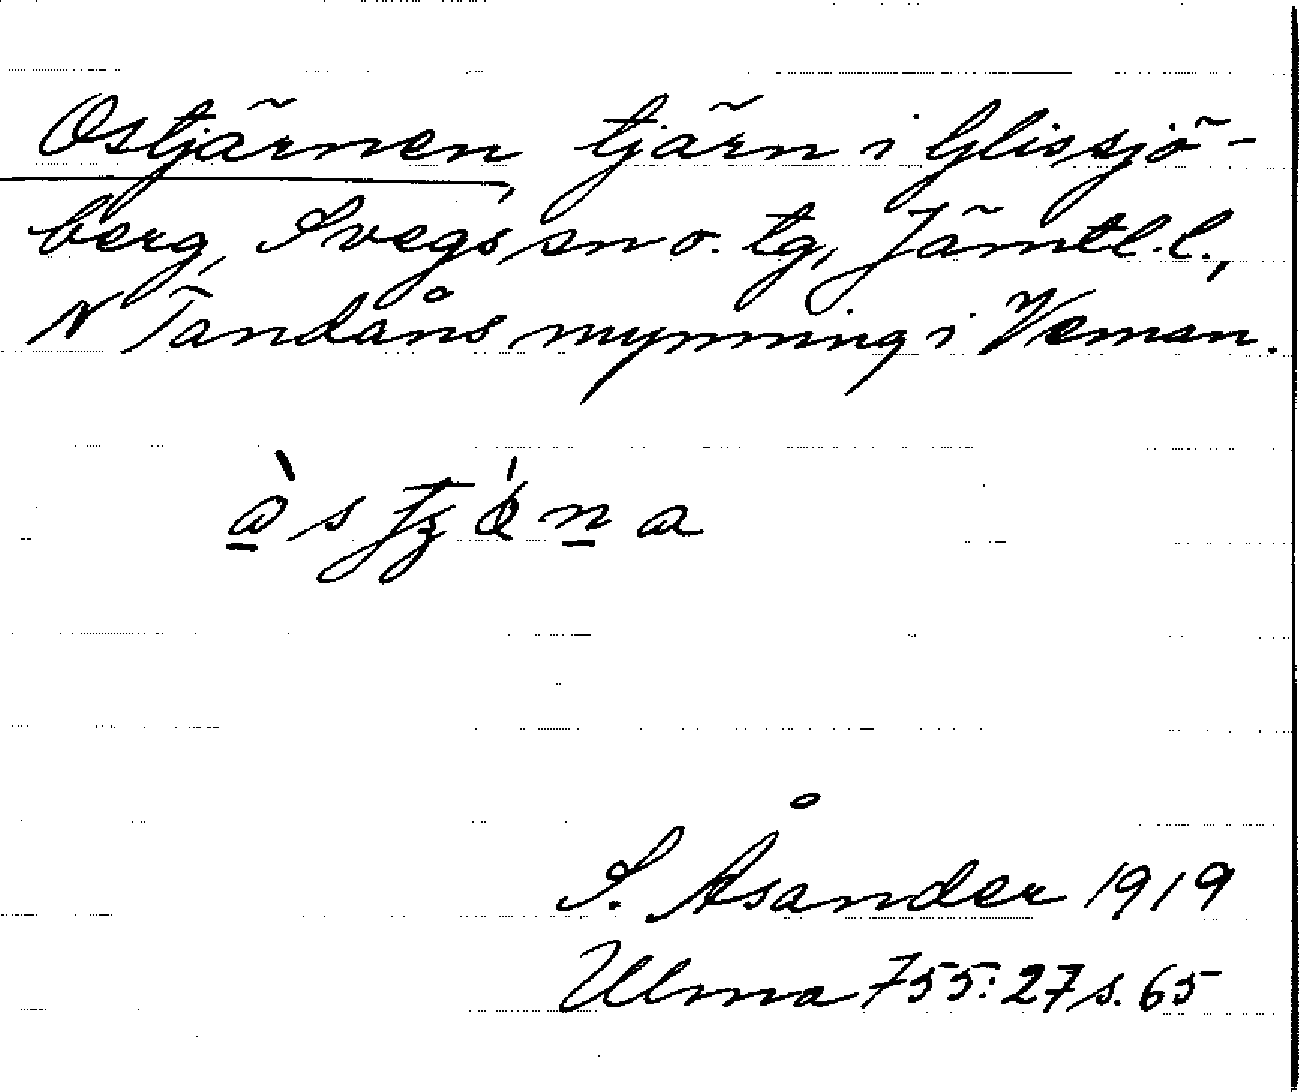 Ostjärnen, tjärn i Glissjö-
berg, Svegs sn o. tg, Jämtl. l.,
N Tandåns mynning i Veman.
S. Åsander 1919
Ulma 755:27 s. 65